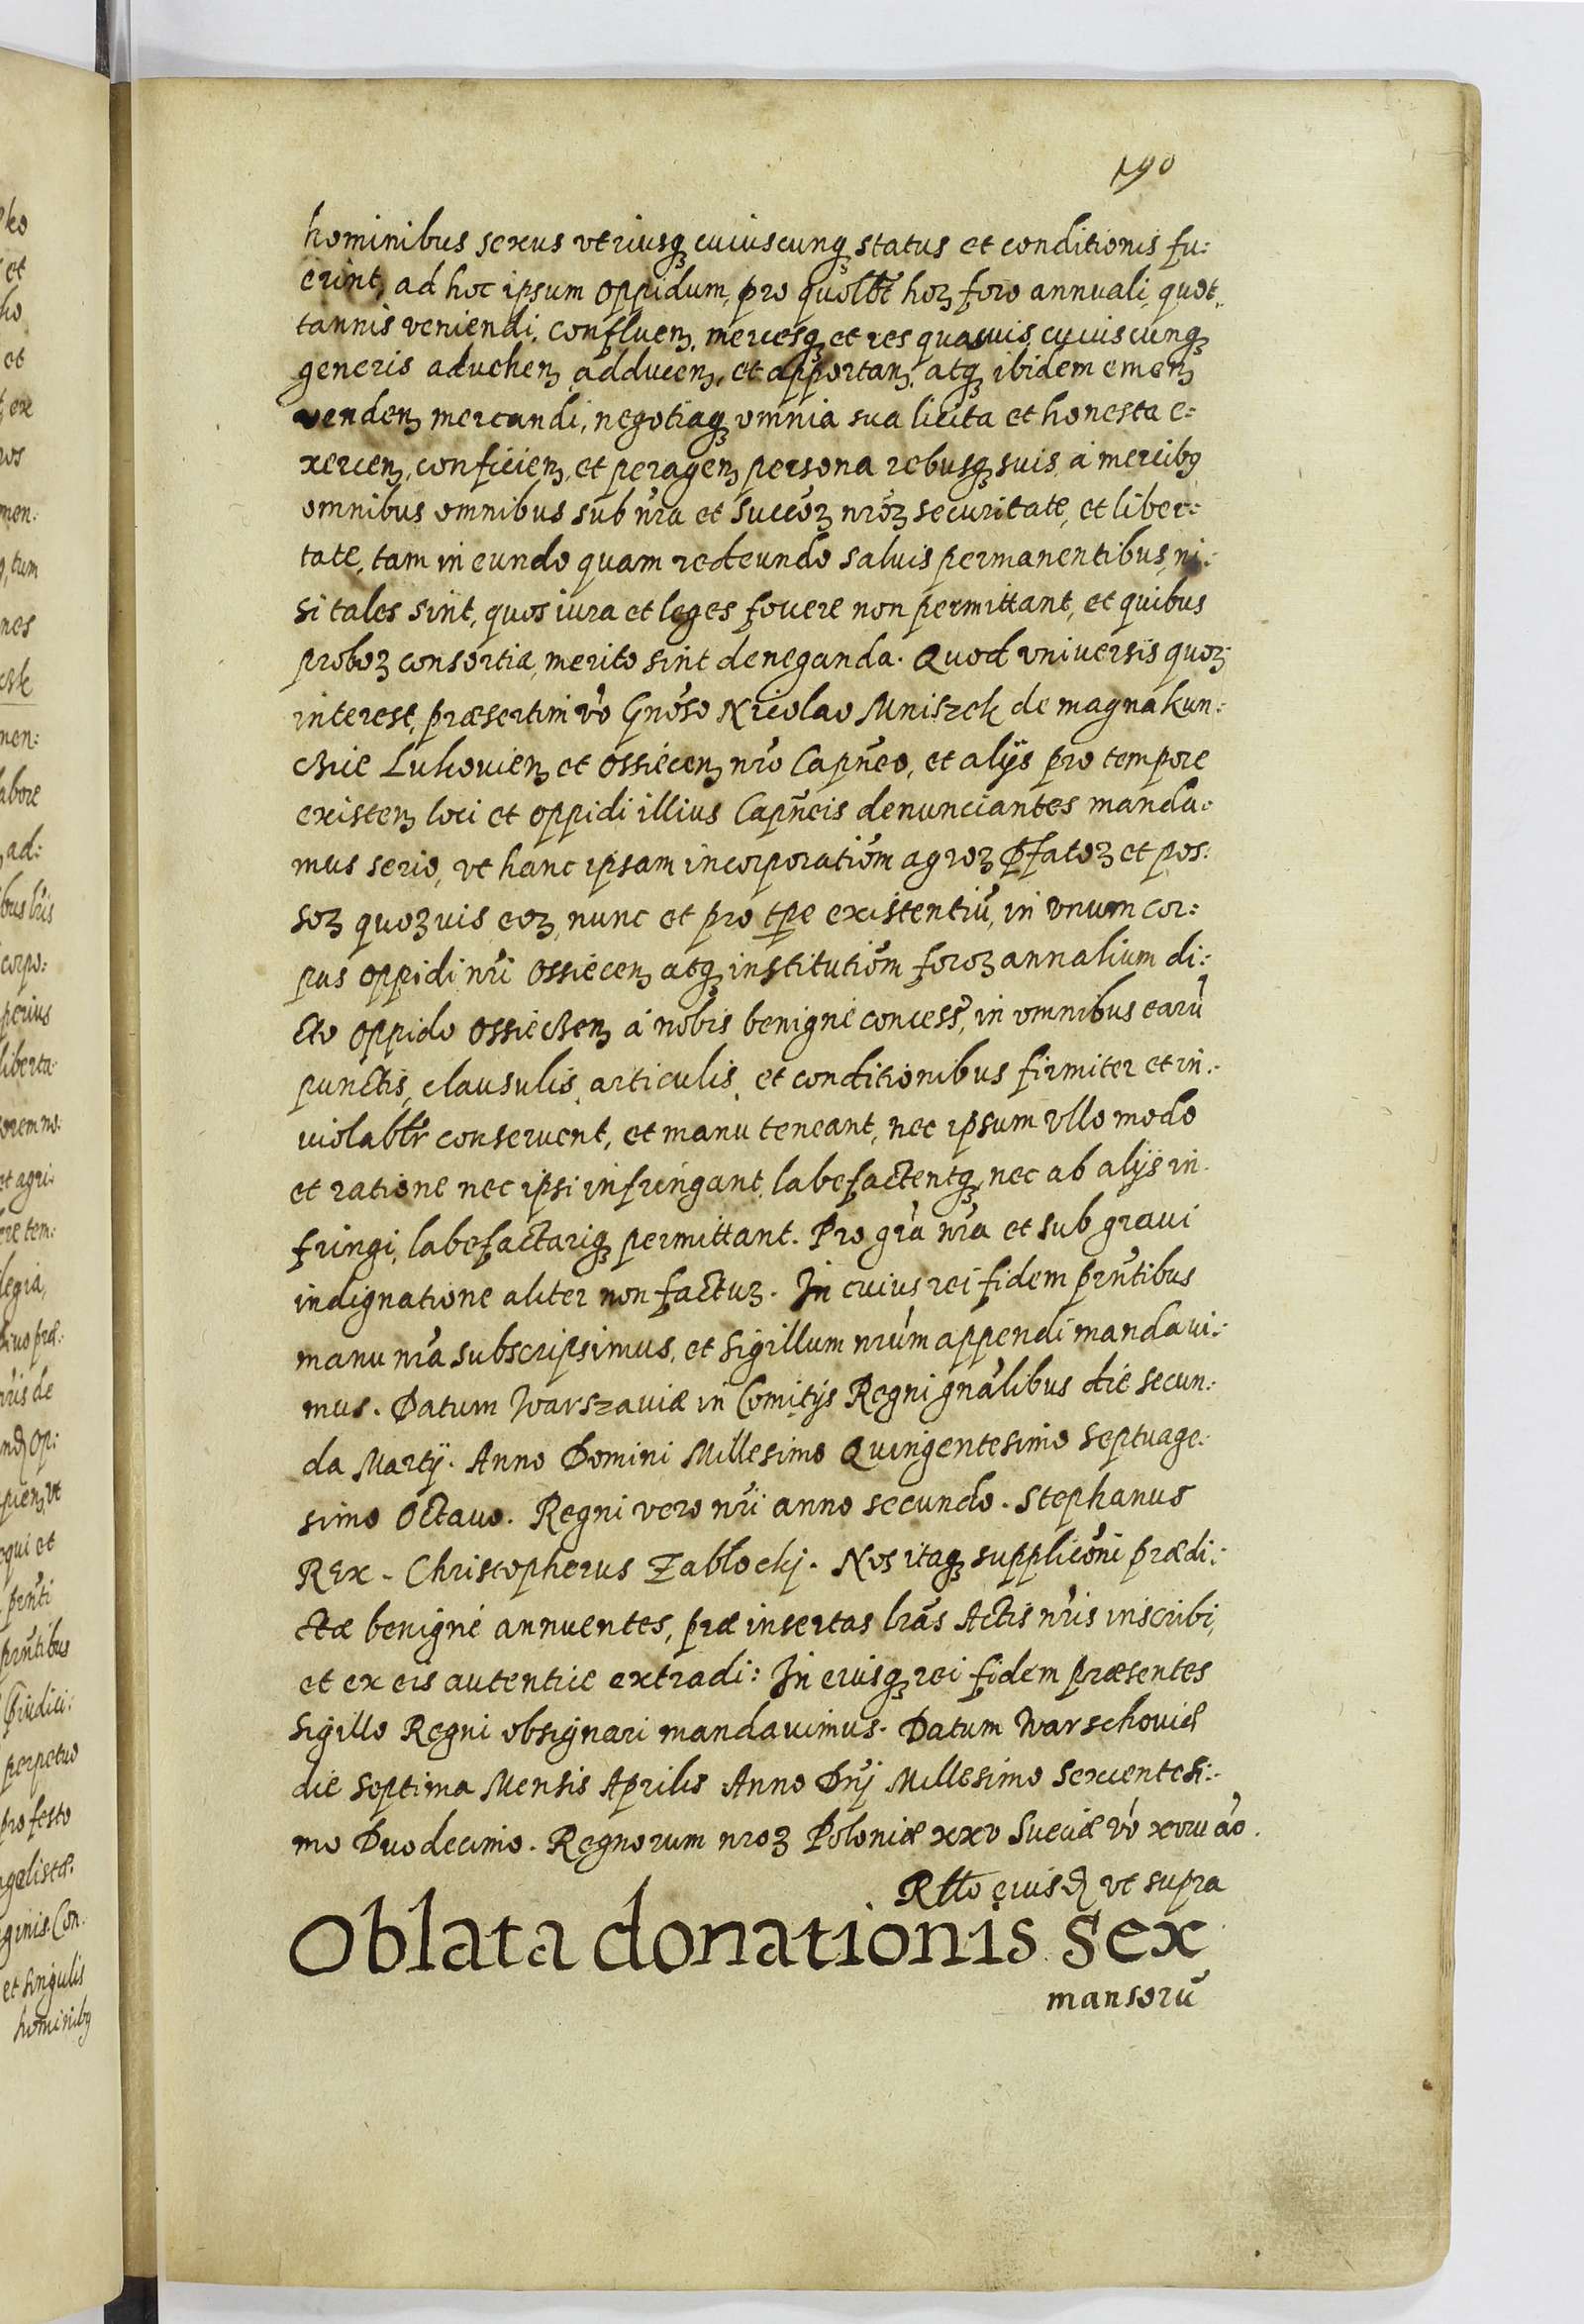 190
hominibus sexus vtriusqꝫ cuiuscunqꝫ status et conditionis fu:
erint, ad hoc ipsum oppidum, pro quolbt hoꝝ foro annuali quot
tannis veniendi, confluenꝫ, mercesqꝫ et res quasuis cuiuscunqꝫ
generis aduehenꝫ adducenꝫ, et apportanꝫ, atqꝫ ibidem emenꝫ
vendenꝫ mercandi, negotiaqꝫ omnia sua licita et honesta e:
xercenꝫ, conficienꝫ, et peragenꝫ persona rebusqꝫ suis a mercibꝰ
omnibus omnibus sub nr̃a et Succõꝝ nrõꝝ securitate, et liber:
tate, tam in eundo quam redeundo saluis permanentibus, ni:
si tales sint, quos iura et leges fouere non permittant, et quibus
proboꝝ consortia, merito sint deneganda. Quod vniuersis quoꝝ
interest, præsertim võ Gnõso Nicolao Mniszek de magna kun:
cʒie Lukouienꝫ et Ossiecenꝫ nrõ Capñeo, et alijs pro tempore
existenꝫ loci et oppidi illius Capñeis denunciantes manda:
mus serio, vt hanc ipsam incorporatiõm agroꝝ p̃fatoꝝ et pos:
soꝝ quoꝝuis eoꝝ, nunc et pro tp̃e existentiũ, in vnum cor:
pus oppidi nr̃i Ossiecenꝫ atqꝫ institutiõm foroꝝ annalium di:
cto oppido Ossiecʒenꝫ á nobis benignè concess̃, in omnibus earũ
punctis, clausulis, articulis, et conditionibus firmiter et in:
uiolabtr̃ conseruent, et manu teneant, nec ipsum vllo modo
et ratione nec ipsi infringant, labefactentqꝫ, nec ab alijs in
fringi, labefactariqꝫ permittant. Pro gr̃a nr̃a et sub graui
indignatione aliter non factuꝝ. In cuius rei fidem prñtibus
manu nr̃a subscripsimus, et Sigillum nrũm appendi mandaui:
mus. Datum Warszauiæ in Comitijs Regni gnãlibus die secun:
da Martij. Anno Domini Millesimo Quingentesimo Septuage:
simo Octauo. Regni vero nr̃i anno secundo. Stephanus
REx. Christopherus Zablockj. Nos itaqꝫ supplicõni prædi:
ctæ benignè annuentes, præ insertas lrãs Actis nr̃is inscribi,
et ex eis autentice extradi: In eiusqꝫ rei fidem præsentes
Sigillo Regni obsignari mandauimus. Datum Warschouiæ
die Septima Mensis Aprilis Anno Dn̄j Millesimo Sexcentesi:
mo Duodecimo. Regnorum nroꝝ Poloniæ xxv Sueciæ võ xviii ão.
Rtto eiusdꝫ vt supra
Oblata donationis sex
mansorũ